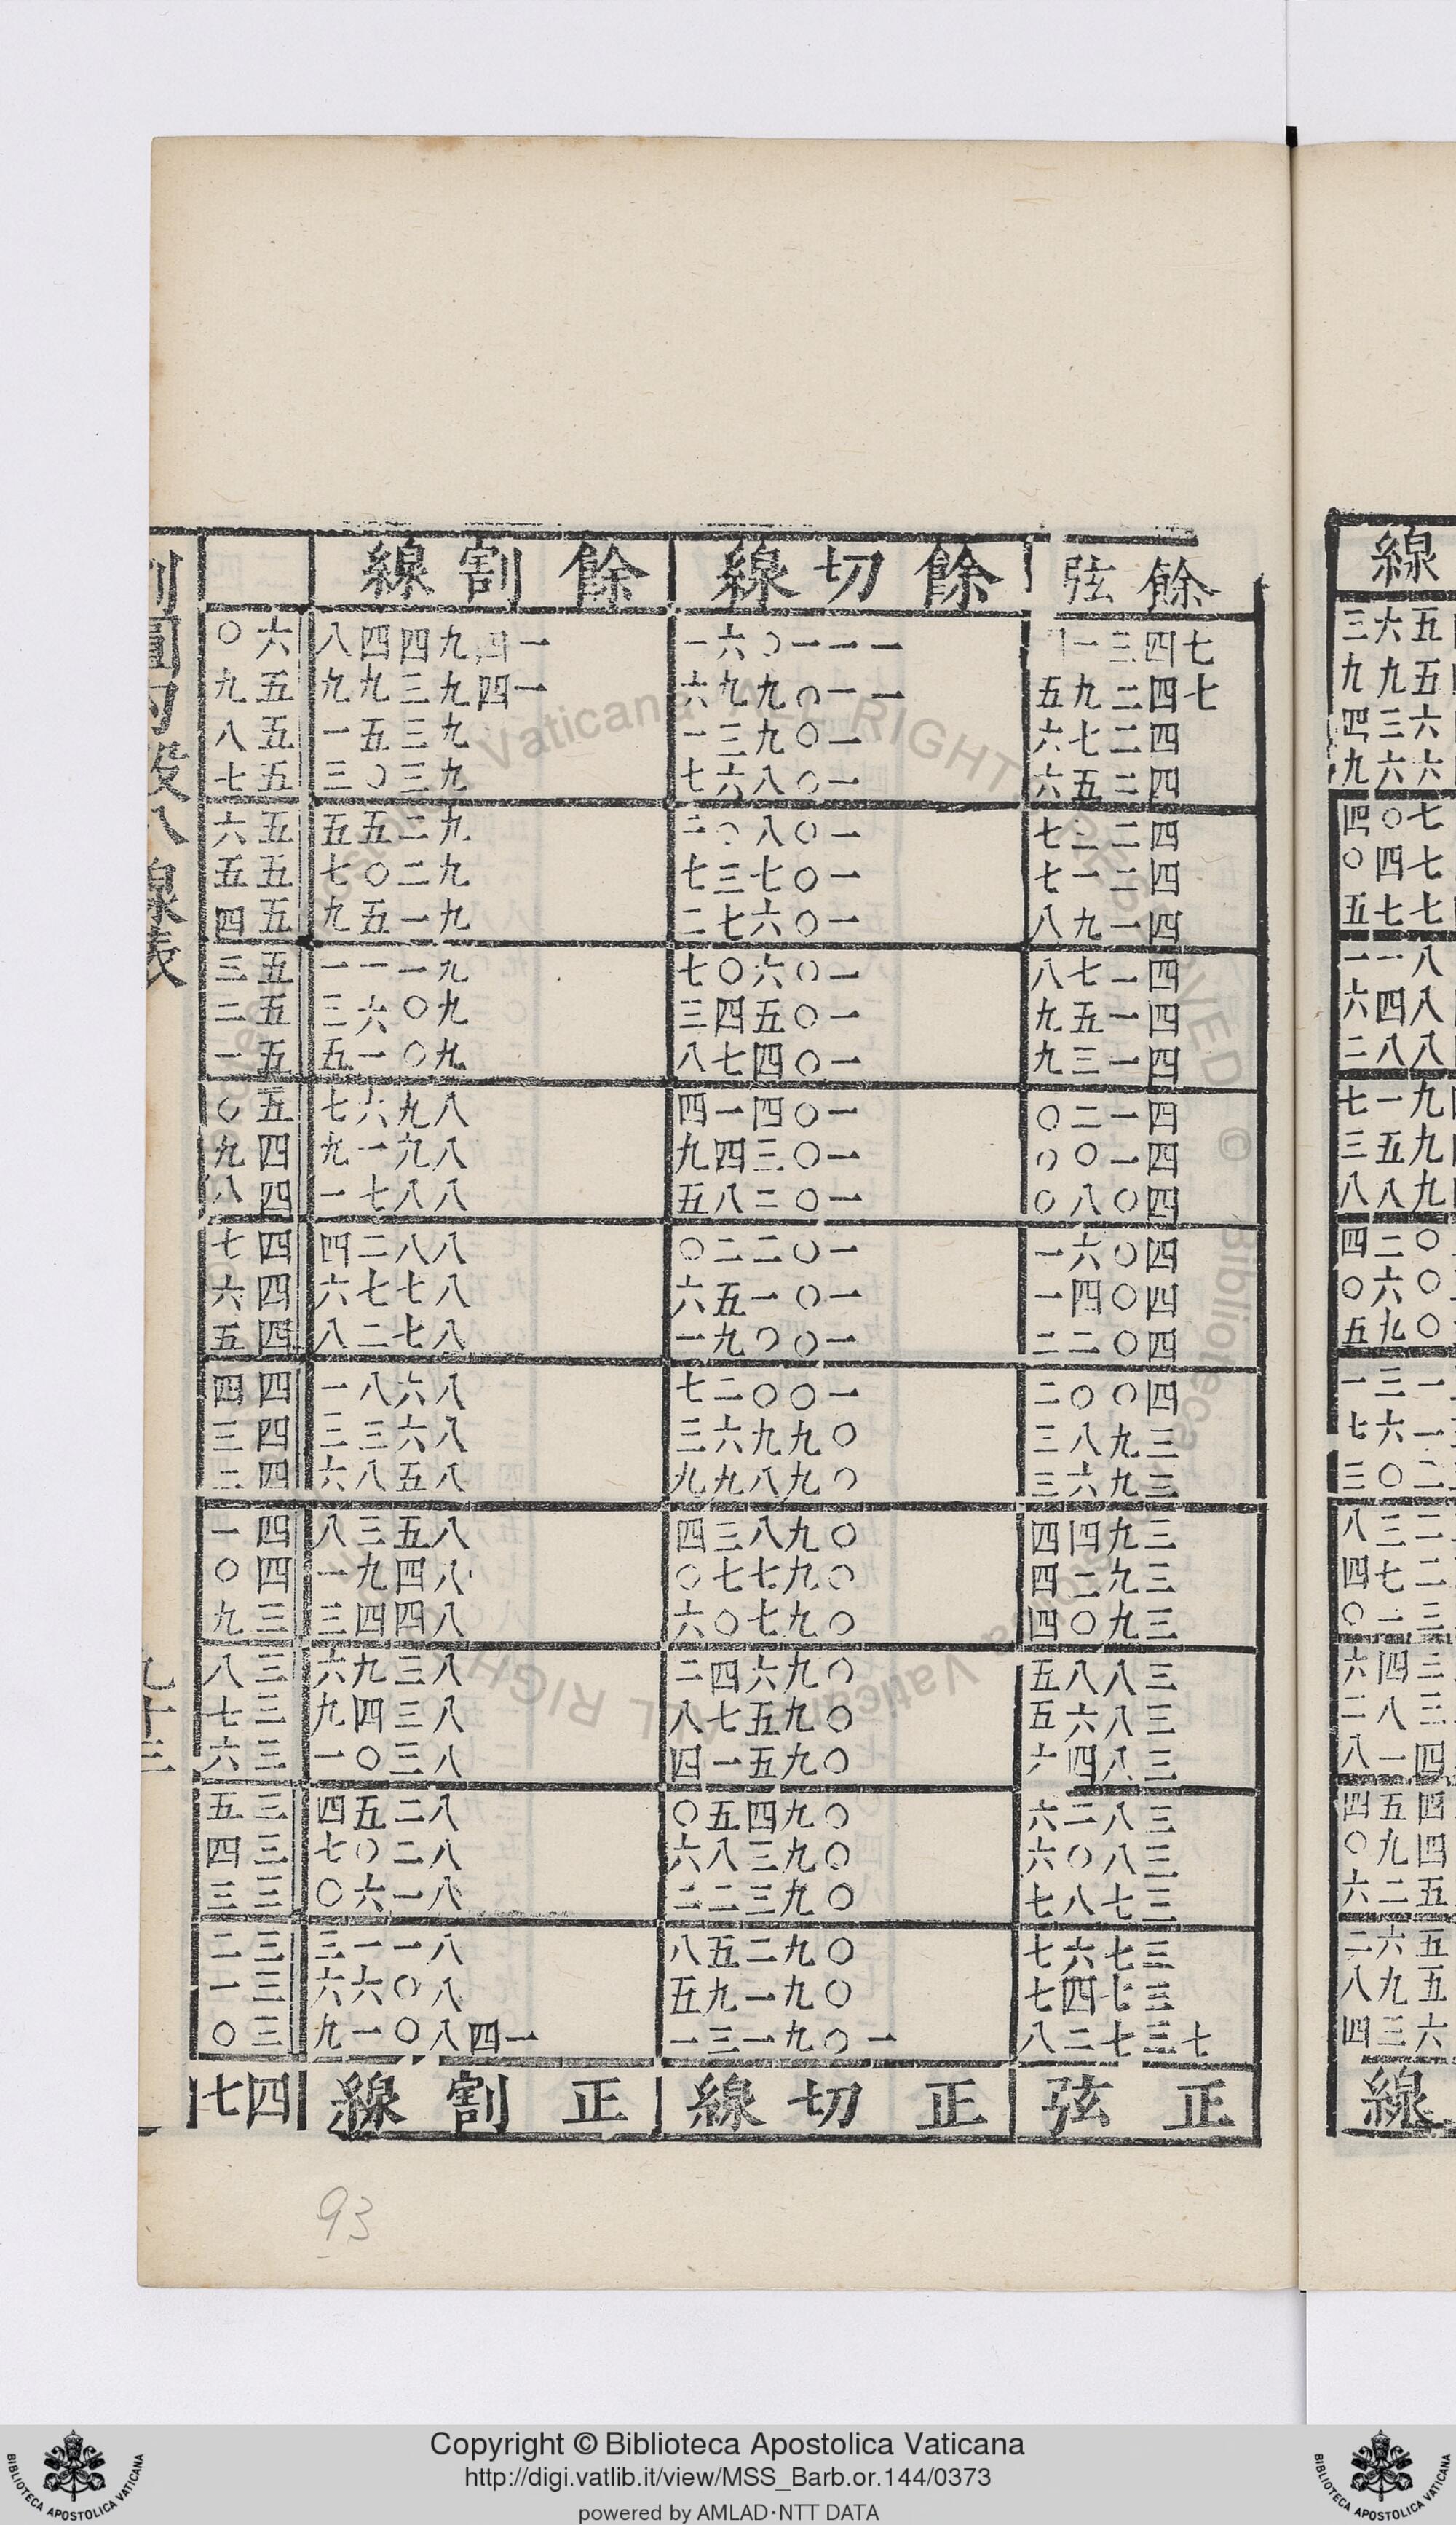 線
五六三
五九九
六三四
六六九
七〇四
七四〇
七七五
八一一
八四六
八八二
九一七
九五三
九八八
〇二四
〇六〇
〇九五
一三一
一六七
二〇三
二三八
二七四
三一〇
三四六
三八二
四一八
四五四
四九〇
五二六
五六二
五九八
六三四
線
餘弦 餘切線 餘割線
七四三一四 一一一〇六一 一四九四四八 六〇
七四二九五 一一〇九九六 一四九三九九 五九
四二七六 一〇九三一 九三五一 五八
四二五六 一〇八六七 九三〇三 五七
四二三七 一〇八〇二 九二五五 五六
四二一七 一〇七三七 九二〇七 五五
四一九八 一〇六七二 九一五九 五四
四一七八 一〇六〇七 九一一一 五三
四一五九 一〇五四三 九〇六三 五二
四一三九 一〇四七八 九〇一五 五一
四一二〇 一〇四一四 八九六七 五〇
四一〇〇 一〇三四九 八九一九 四九
四〇八〇 一〇二八五 八八七一 四八
四〇六一 一〇二二〇 八八二四 四七
四〇四一 一〇一五六 八七七六 四六
四〇二二 一〇〇九一 八七二八 四五
四〇〇二 一〇〇二七 八六八一 四四
三九八三 〇九九六三 八六三三 四三
三九六三 〇九八九九 八五八六 四二
三九四四 〇九八三四 八五三八 四一
三九二四 〇九七七〇 八四九一 四〇
三九〇四 〇九七〇六 八四四三 三九
三八八五 〇九六四二 八三九六 三八
三八六五 〇九五七八 八三四九 三七
三八四六 〇九五一四 八三〇一 三六
三八二六 〇九四五〇 八二五四 三五
三八〇六 〇九三八六 八二〇七 三四
三七八七 〇九三二二 八一六〇 三三
三七六七 〇九二五八 八一一三 三二
三七四七 〇九一九五 八〇六六 三一
七三七二八 一〇九一三一 一四八〇一九 三〇
正弦 正切線 正割線 四七
割圓勾股八線表
九十三
93
Copyright © Biblioteca Apostolica Vaticana
http://digi.vatlib.it/view/MSS_Barb.or.144/0373
powered by AMLAD·NTT DATA
BIBLIOTECA APOSTOLICA VATICANA
BIBLIOTECA APOSTOLICA VATICANA